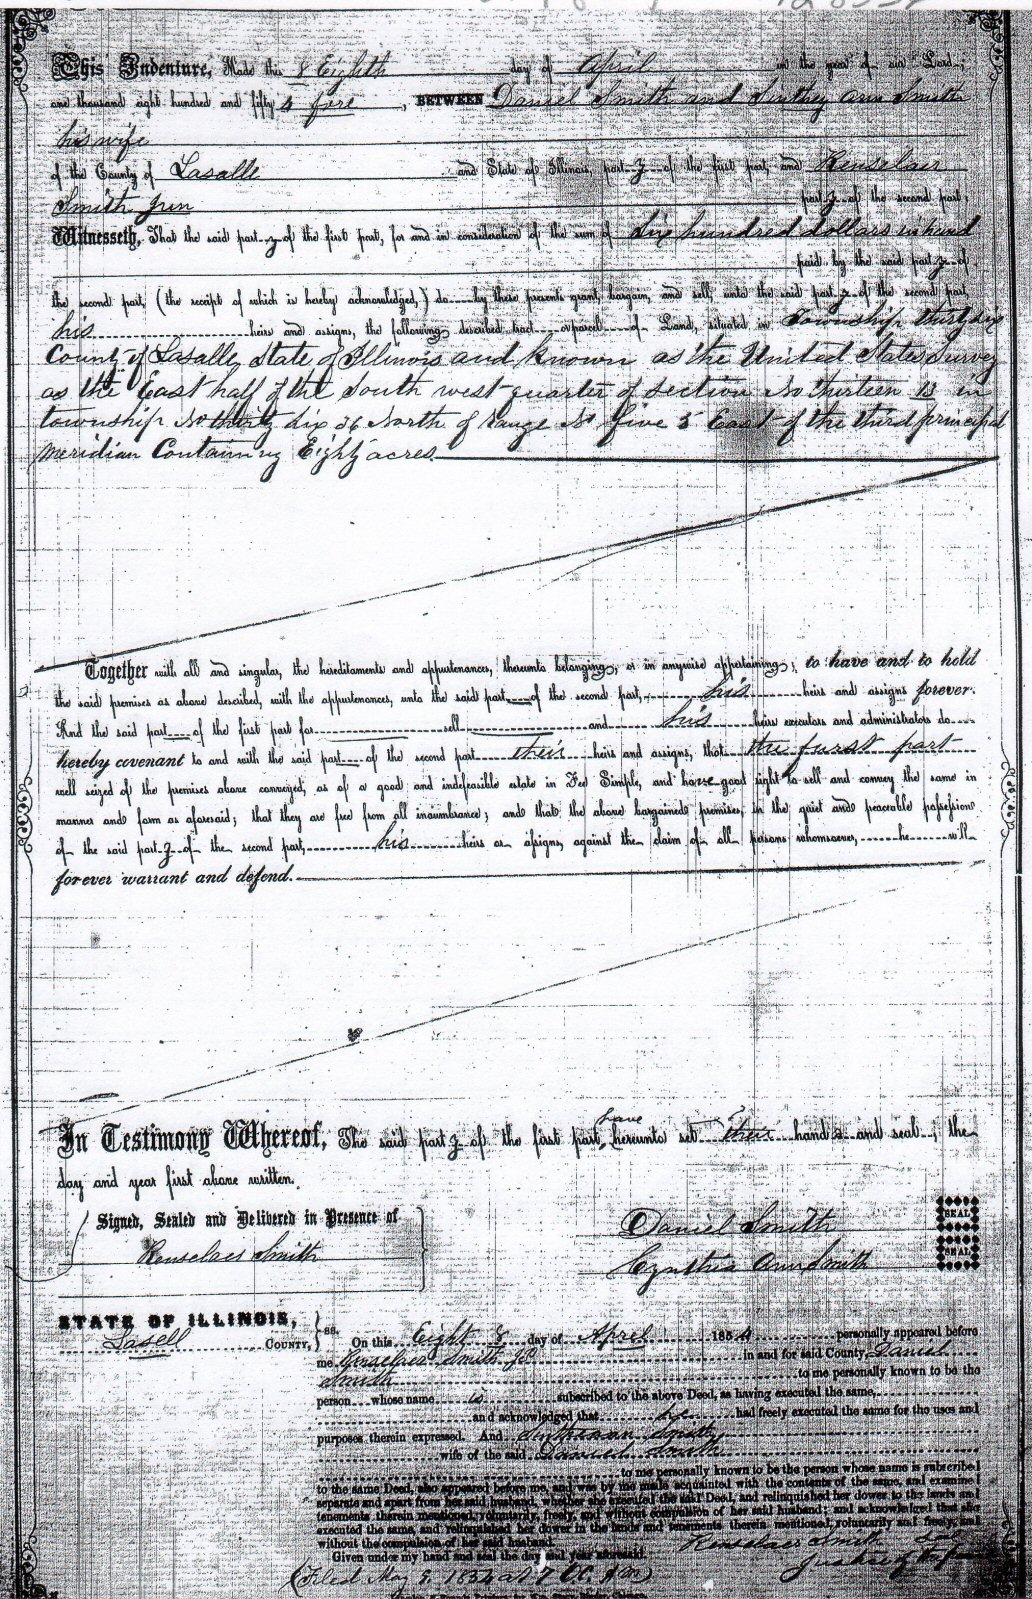 This Indenture, Made this 8 Eighth day of April in the year of our Lord,
one thousand eight hundred and fifty 4 fore, BETWEEN Daniel Smith and Sinthy ann Smith
his wife
of the County of Lasalle and State of Illinois, part z of the first part, and Renselaer
Smith Jun part z of the second part;
Witnesseth, That the said part z of the first part, for and in consideration of the sum of six hundred dollars in hand
paid by the said part z of
the second part, (the receipt of which is hereby acknowledged,) do by these presents grant, bargain, and sell, unto the said part z of the second part,
his heirs and assigns, the following described tract or parcel of Land, situated in Township thirty six
County of Lasalle State of Illinois and known as the United States Survey
as the East half of the South west quarter of section No thirteen 13 in
township No thirty six 36 North of range No five 5 East of the third principal
meridian Containing Eighty acres
Together with all and singular, the hereditaments and appurtenances, thereunto belonging, or in anywise appertaining; to have and to hold
the said premises as above described, with the appurtenances, unto the said part of the second part, his heirs and assigns forever.
And the said part of the first part for self and his heirs executors and administrators do
hereby covenant to and with the said part of the second part their heirs and assigns, that the furst part
well seized of the premises above conveyed, as of a good and indefeasible estate in Fee Simple, and have good right to sell and convey the same in
manner and form as aforesaid; that they are free from all incumbrance; and that the above bargained premises, in the quiet and peaceable possession
of the said part z of the second part, his heirs or assigns, against the claim of all persons whomsoever, he will
forever warrant and defend.
have
In Testimony Whereof, The said part z of the first part, hereunto set their hand s and seal, the
day and year first above written.
Signed, Sealed and Delivered in Presence of
Renselaer Smith
Daniel Smith SEAL
Cynthia Ann Smith SEAL
STATE OF ILLINOIS,
Lasell COUNTY, ss. On this Eight 8 day of April 1854 personally appeared before
me Renselaer Smith in and for said County, Daniel
Smith to me personally known to be the
person whose name is subscribed to the above Deed, as having executed the same,
and acknowledged that had freely executed the same for the uses and
purposes therein expressed. And Smith
wife of the said Daniel Smith
to me personally known to be the person whose name is subscribed
to the same Deed, also appeared before me, and was by me made acquainted with the contents of the same, and examined
separate and apart from her said husband, whether she executed the said Deed, and relinquished her dower to the lands and
tenements therein mentioned, voluntarily, freely, and without compulsion of her said husband; and acknowledged that she
executed the same, and relinquished her dower in the lands and tenements therein mentioned, voluntarily and freely, and
without the compulsion of her said husband.
Given under my hand and seal the day and year aforesaid.
Renselaer Smith
Justice of the
(Filed May 9, 1854 at 7 OC